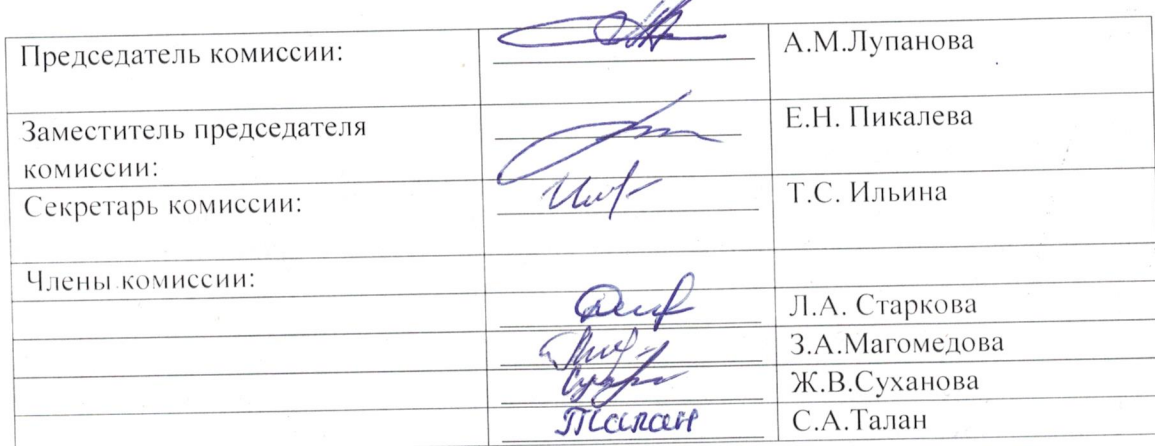 Председатель комиссии: А.М.Лупанова
Заместитель председателя Е.Н. Пикалева
комиссии:
Секретарь комиссии: Т.С. Ильина
Члены комиссии:
Л.А. Старкова
З.А.Магомедова
Ж.В.Суханова
Талан С.А.Талан